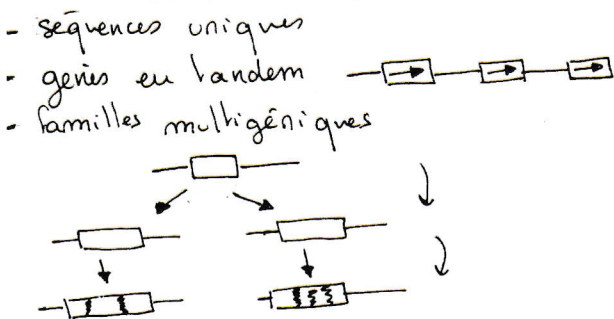 - séquences uniques
- gènes en tandem
- familles multigéniques